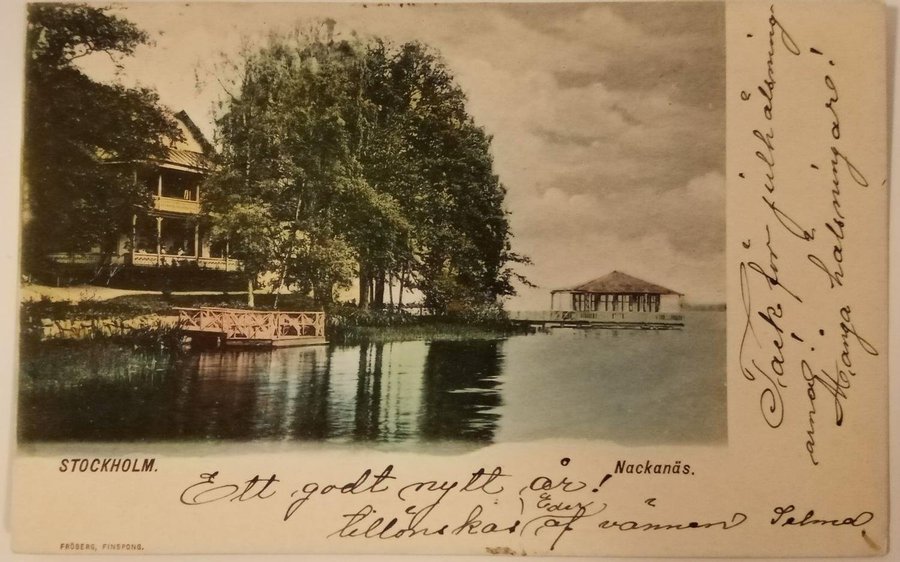 STOCKHOLM.
Nackanäs.
Ett godt nytt år!
Eder
tillönskas af vännen Selma
FRÖBERG, FINSPONG.
Tack för julhälsning
arna!
Många hälsningar!